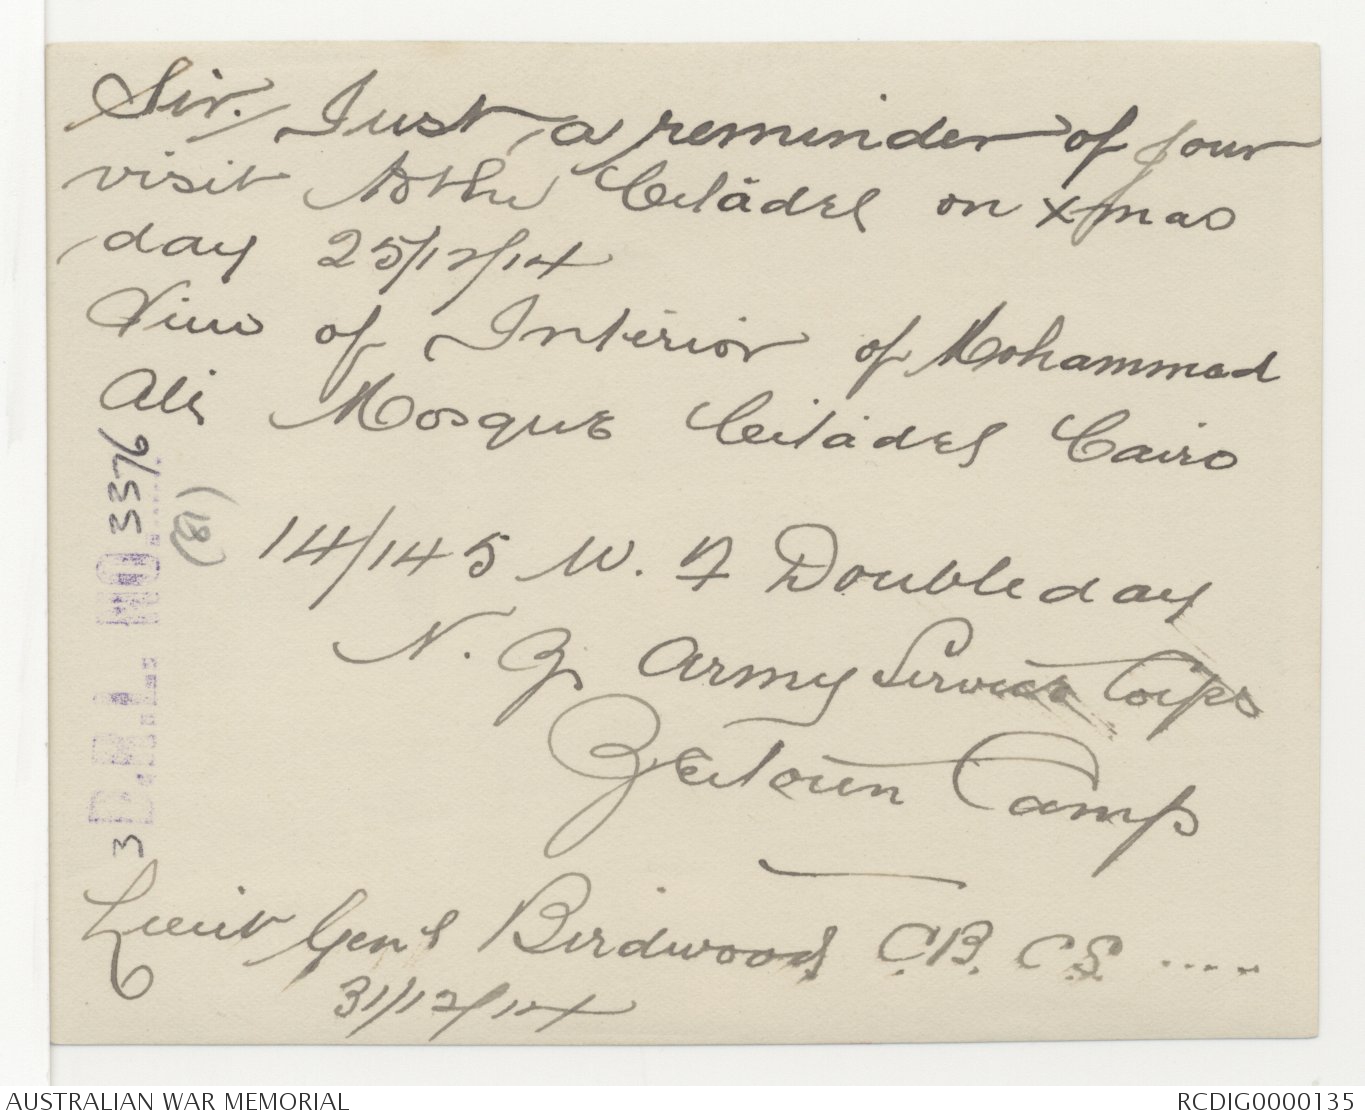 Sir. Just a reminder of your
visit to the Citadel on xmas
day 25/12/14
View of Interior of Mohammad
Ali Mosque Citadel Cairo
3 D.R.L. NO. 3376
(18)
14/145 W. F Doubleday
N. Z. Army Service Corps
Zeitoun Camp
Lieut Gen'l Birdwood C.B. C.S. ....
31/12/14
AUSTRALIAN WAR MEMORIAL
RCDIG0000135